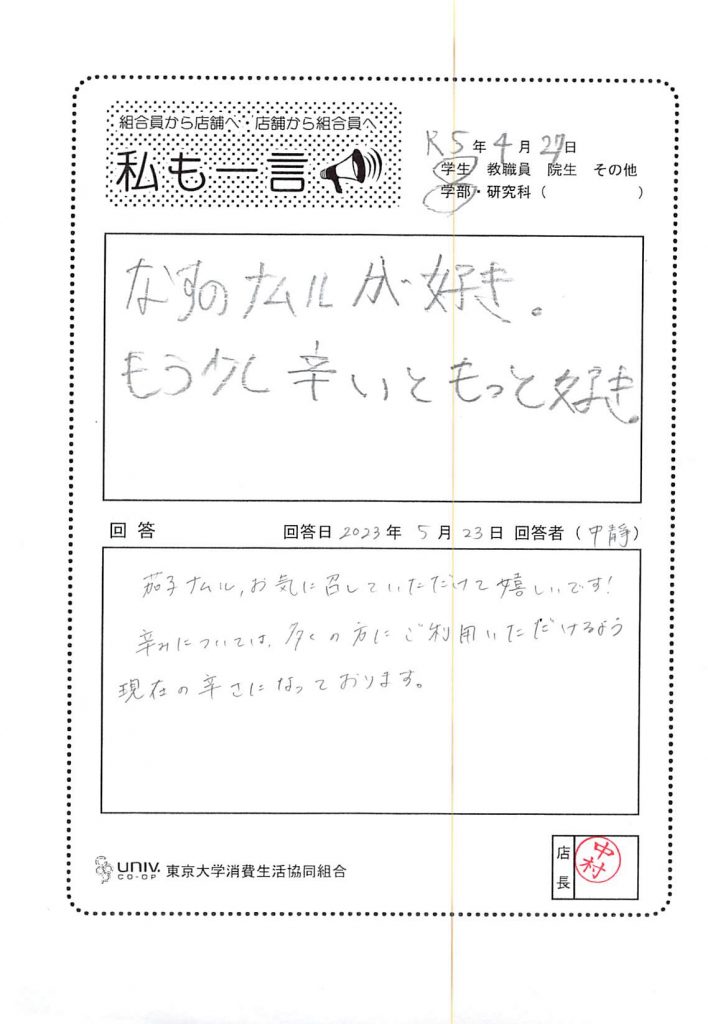 組合員から店舗へ・店舗から組合員へ
私も一言
R5年4月27日
学生 教職員 院生 その他
学部・研究科（ ）
なすのナムルが好き。
もう少し辛いともっと好き。
回答 回答日 2023年 5月 23日 回答者（中静）
茄子ナムル,お気に召していただけて嬉しいです!
辛みについては、多くの方にご利用いただけるよう
現在の辛さになっております。
UNIV. CO-OP 東京大学消費生活協同組合
店長 中村